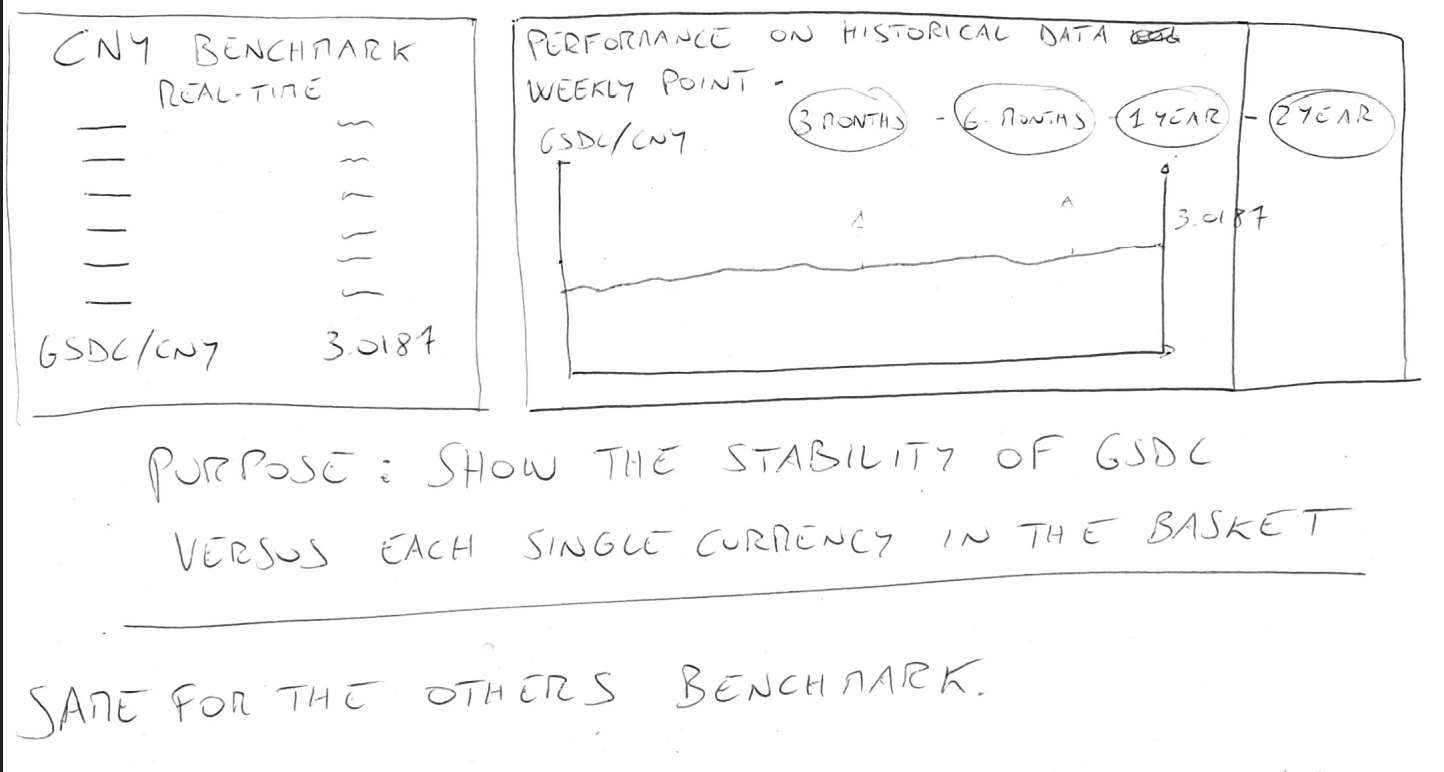 CNY BENCHMARK
REAL-TIME
GSDC/CNY 3.0187
PERFORMANCE ON HISTORICAL DATA
WEEKLY POINT -
3 MONTHS - 6 MONTHS - 1 YEAR - 2 YEAR
GSDC/CNY
3.0187
PURPOSE: SHOW THE STABILITY OF GSDC
VERSUS EACH SINGLE CURRENCY IN THE BASKET
SAME FOR THE OTHERS BENCHMARK.